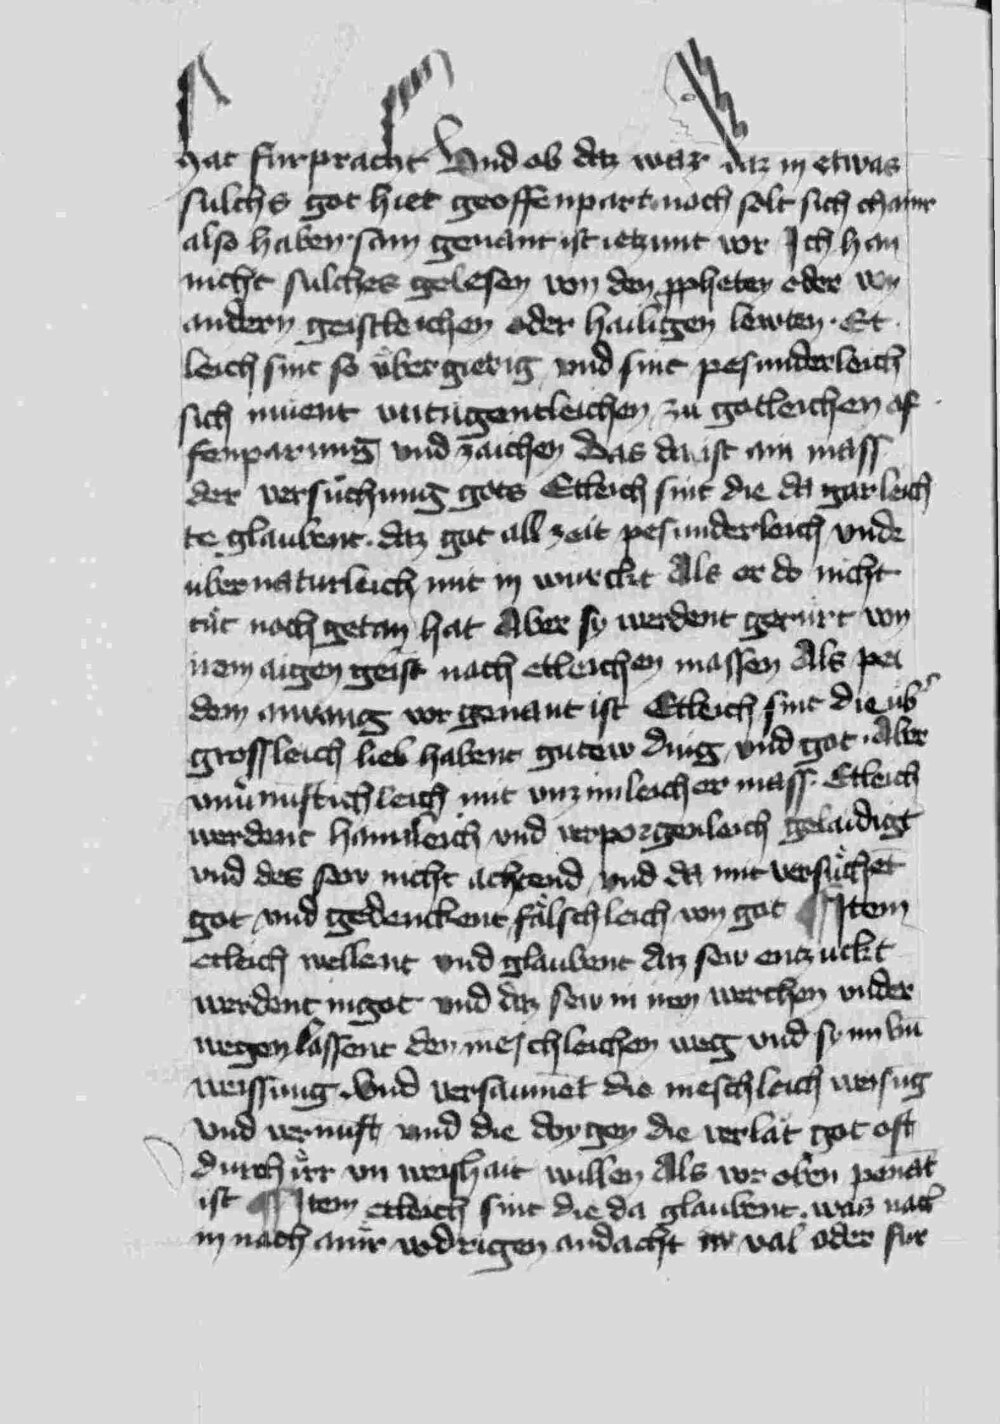 hat furpracht Vnd ob daz war daz in etwas
sulchs got hiet geoffenpart noch solt sich chainr
also haben sam genant ist ietzunt vor Ich han
nicht sulches gelesen von den ppheten oder von
andern geistleichen oder hailigen lewten · Et
leich sint so übergietig vnd sint pesunderleich
sich muent vntugentleichen zu gotleichen of
fenparung vnd zaichen Das da ist ain mass
der versůchung gots Etleich sint die da gar leich
te glaubent · daz got all zeit pesunderleich vnde
vbernaturleich mit in wurckt Als er do nicht
tůt noch getan hat Aber sy werdent gerürt von
irem aigen geist nach etleichen massen Als pei
dem anuang vor genant ist Etleich sint die üb
grossleich lieb habent gutew ding vnd got · Aber
vnuernuftichleich mit vnzimleicher mass · Etleich
werdent haimleich vnd verporgenleich gelaidigt
vnd des sew nicht achtend vnd da mit versůchēt
got vnd gedenckent fälschleich von got ¶ Item
etleich wellent vnd glaubent daz sew entzuckt
werdent in got vnd daz sew in iren werchen vnder
wegen lassent den meschleichen weg vnd
weissung · Vnd versaumēt die meschleich weisūg
vnd vernuft vnd die doygen die verlät got oft
durch irr vn weishait willen Als vor oben penāt
ist ¶ Item etleich sint die da glaubent · was nach
in nach ainr vodrigen andacht in val oder fur